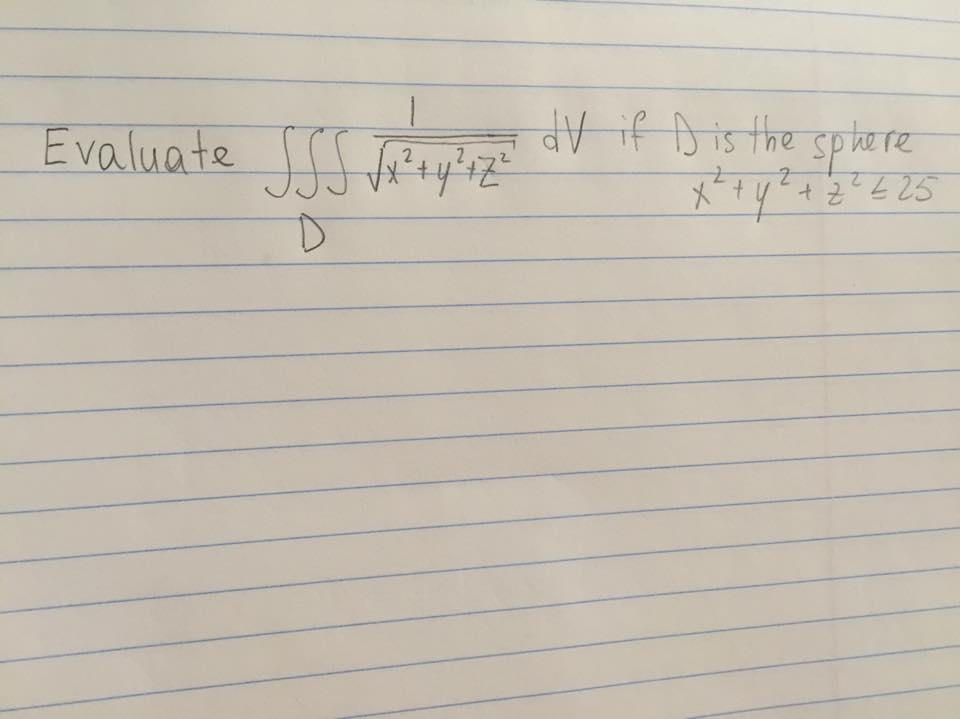 Evaluate ∭_D 1/√(x²+y²+z²) dV if D is the sphere
x²+y²+z² ≤ 25